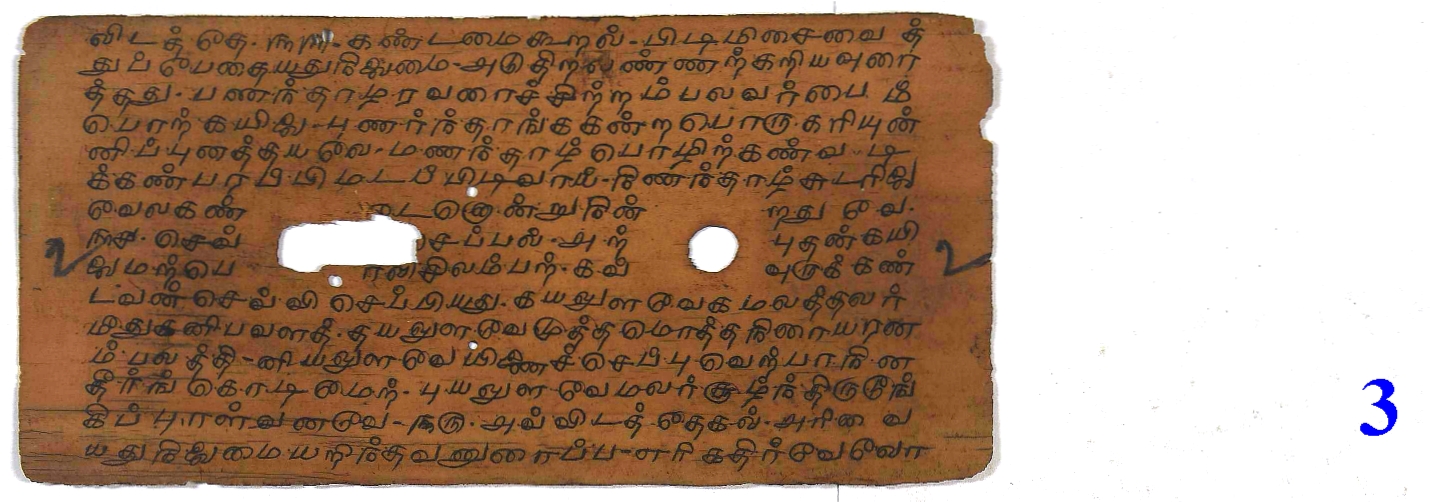 விடத் தே. ௩௩. கண்டமை கூறல். பிடிமிசை வைத்
துப் பேயதையதுநிலைமை-அடுதிறலண்ணற்கறியவுரை
த்தது. பணந்தாழரவரைச்சிற்றம்பலவர்பைம்
பொற்கயிலை-புணர்ந்தாங்ககன்றபொருகரியுன்
னிப்புனத்தயலே-மணந்தாழ்பொழிற்கண்வடி
க்கண்பரப்பிமடப்பிடிவாய்-நிணந்தாழ்சுடரிலை
வேலகண் டேனொன்றுநின் றதுவே.
௩௪. செவ் செப்பல்-அற் புதன்கயி
லைமற்பொ சிலம்பற்-கவ் வுருக்கண்
டவன்செவ்விசெப்பியது. கயலுளவேகமலத்தலர்
மீதுகனிபவளத்-தயலுளவேமுத்தமொத்தநிரையரன
ம்பலத்தி-னியலுளவேயிணைச்செப்புவெற்பாநின
தீர்ங்கொடிமேற்-புயலுளவேமலர்சூழ்ந்திருடூங்
கிப்புரள்வனவே-௩௫. அவ்விடத்தேகல்-அரிவை
யதுநிலைமையறிந்தவனுரைப்ப-எரிகதிர்வேலோ